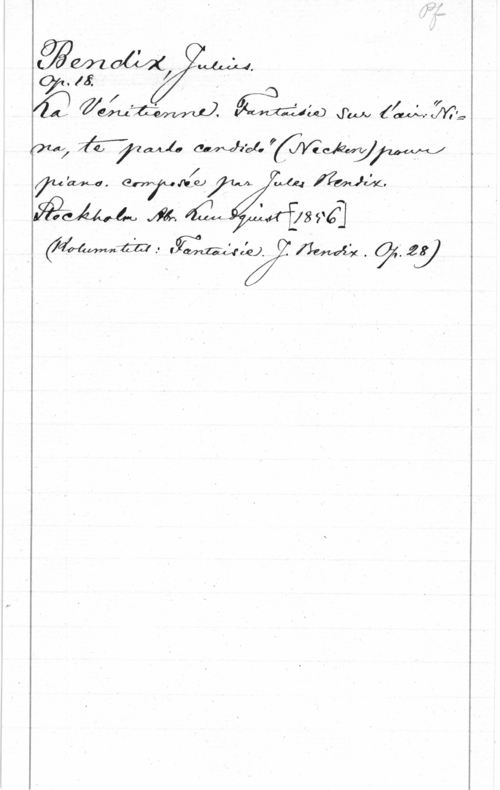 Pf
Bendix, Julius.
Op. 18.
La Vénitienne. Fantaisie sur l'air: "Ni=
na, te parlo candido" (Necken) pour
piano. composée par Jules Bendix.
Stockholm Abr. Lundquist [1856]
(Kolumntitel: Fantaisie. J. Bendix. Op. 28)